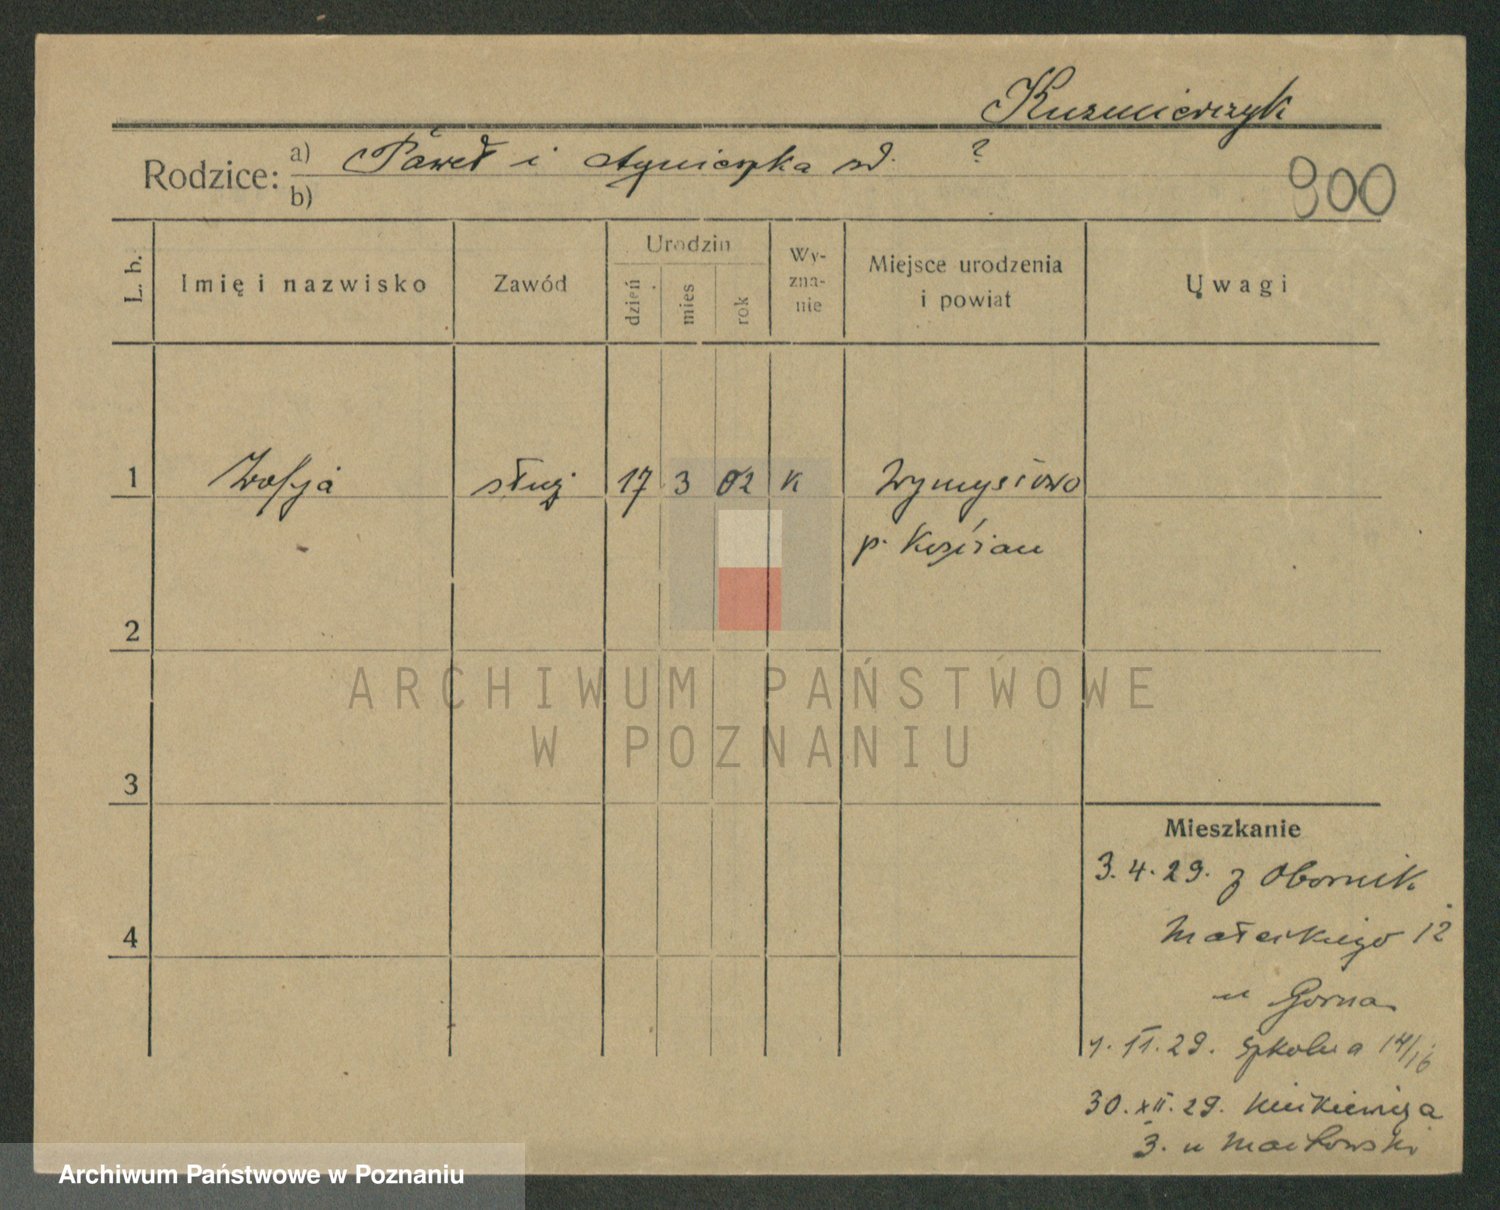 Kuzmierczyk
Rodzice: a) Paweł i Agnieszka zd. ?
b)
900
L. b.
Imię i nazwisko
Zawód
Urodzin
dzień
mies
rok
Wy-
zna-
nie
Miejsce urodzenia
i powiat
Uwagi
1 Zofja służ 17 3 02 K Zymysłowo
p. Kościan
2
ARCHIWUM PAŃSTWOWE
W POZNANIU
3
Mieszkanie
3.4.29. z Obornik
Małeckiego 12
4
u Gorna
1. 11. 29. Szkolna 14/16
30. XII. 29. Mickiewicza
3. u Maćkowski
Archiwum Państwowe w Poznaniu